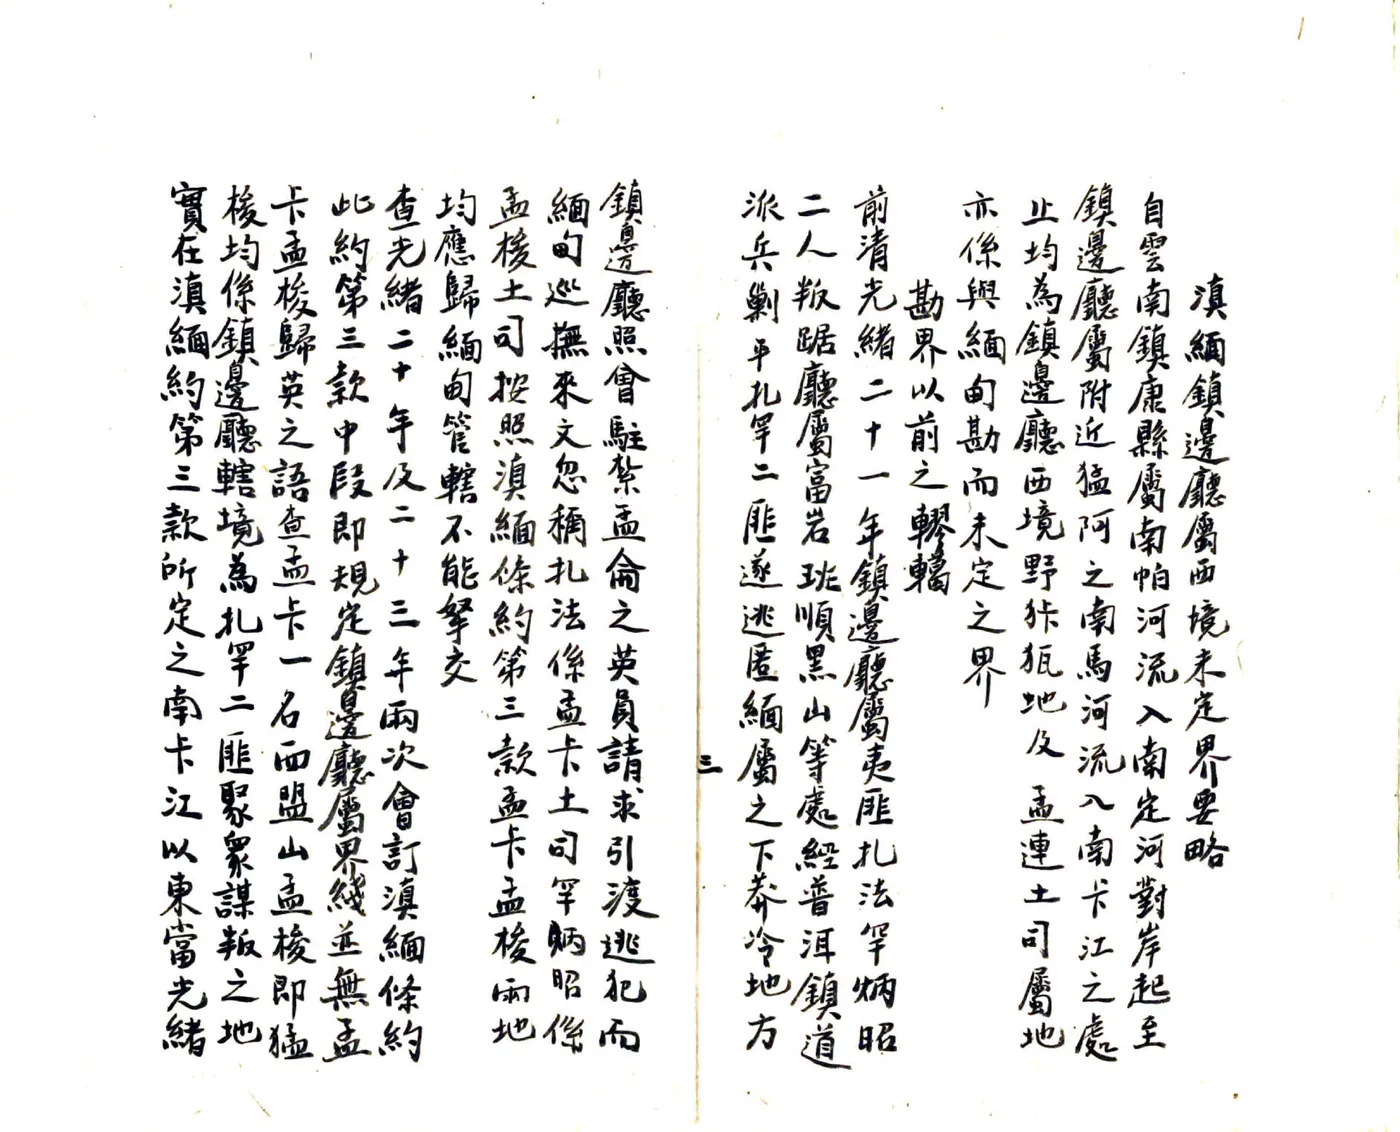 滇緬鎮邊廳屬西境未定界要略
自雲南鎮康縣屬南帕河流入南定河對岸起至
鎮邊廳屬附近猛阿之南馬河流入南卡江之處
止均為鎮邊廳西境野㹀㼌地及 孟連土司屬地
亦係與緬甸勘而未定之界
勘界以前之轇轕
前清光緒二十一年鎮邊廳屬夷匪扎法罕炳昭
二人叛踞廳屬富岩班順黑山等處經普洱鎮道
派兵剿平扎罕二匪遂逃匿緬屬之下莽冷地方
三
鎮邊廳照會駐紮孟侖之英員請求引渡逃犯而
緬甸巡撫來文忽稱扎法係孟卡土司罕炳昭係
孟梭土司按照滇緬條約第三款孟卡孟梭兩地
均應歸緬甸管轄不能拏交
查光緒二十年及二十三年兩次會訂滇緬條約
此約第三款中段即規定鎮邊廳屬界綫並無孟
卡孟梭歸英之語查孟卡一名西盟山孟梭即猛
梭均係鎮邊廳轄境為扎罕二匪聚眾謀叛之地
實在滇緬約第三款所定之南卡江以東當光緒